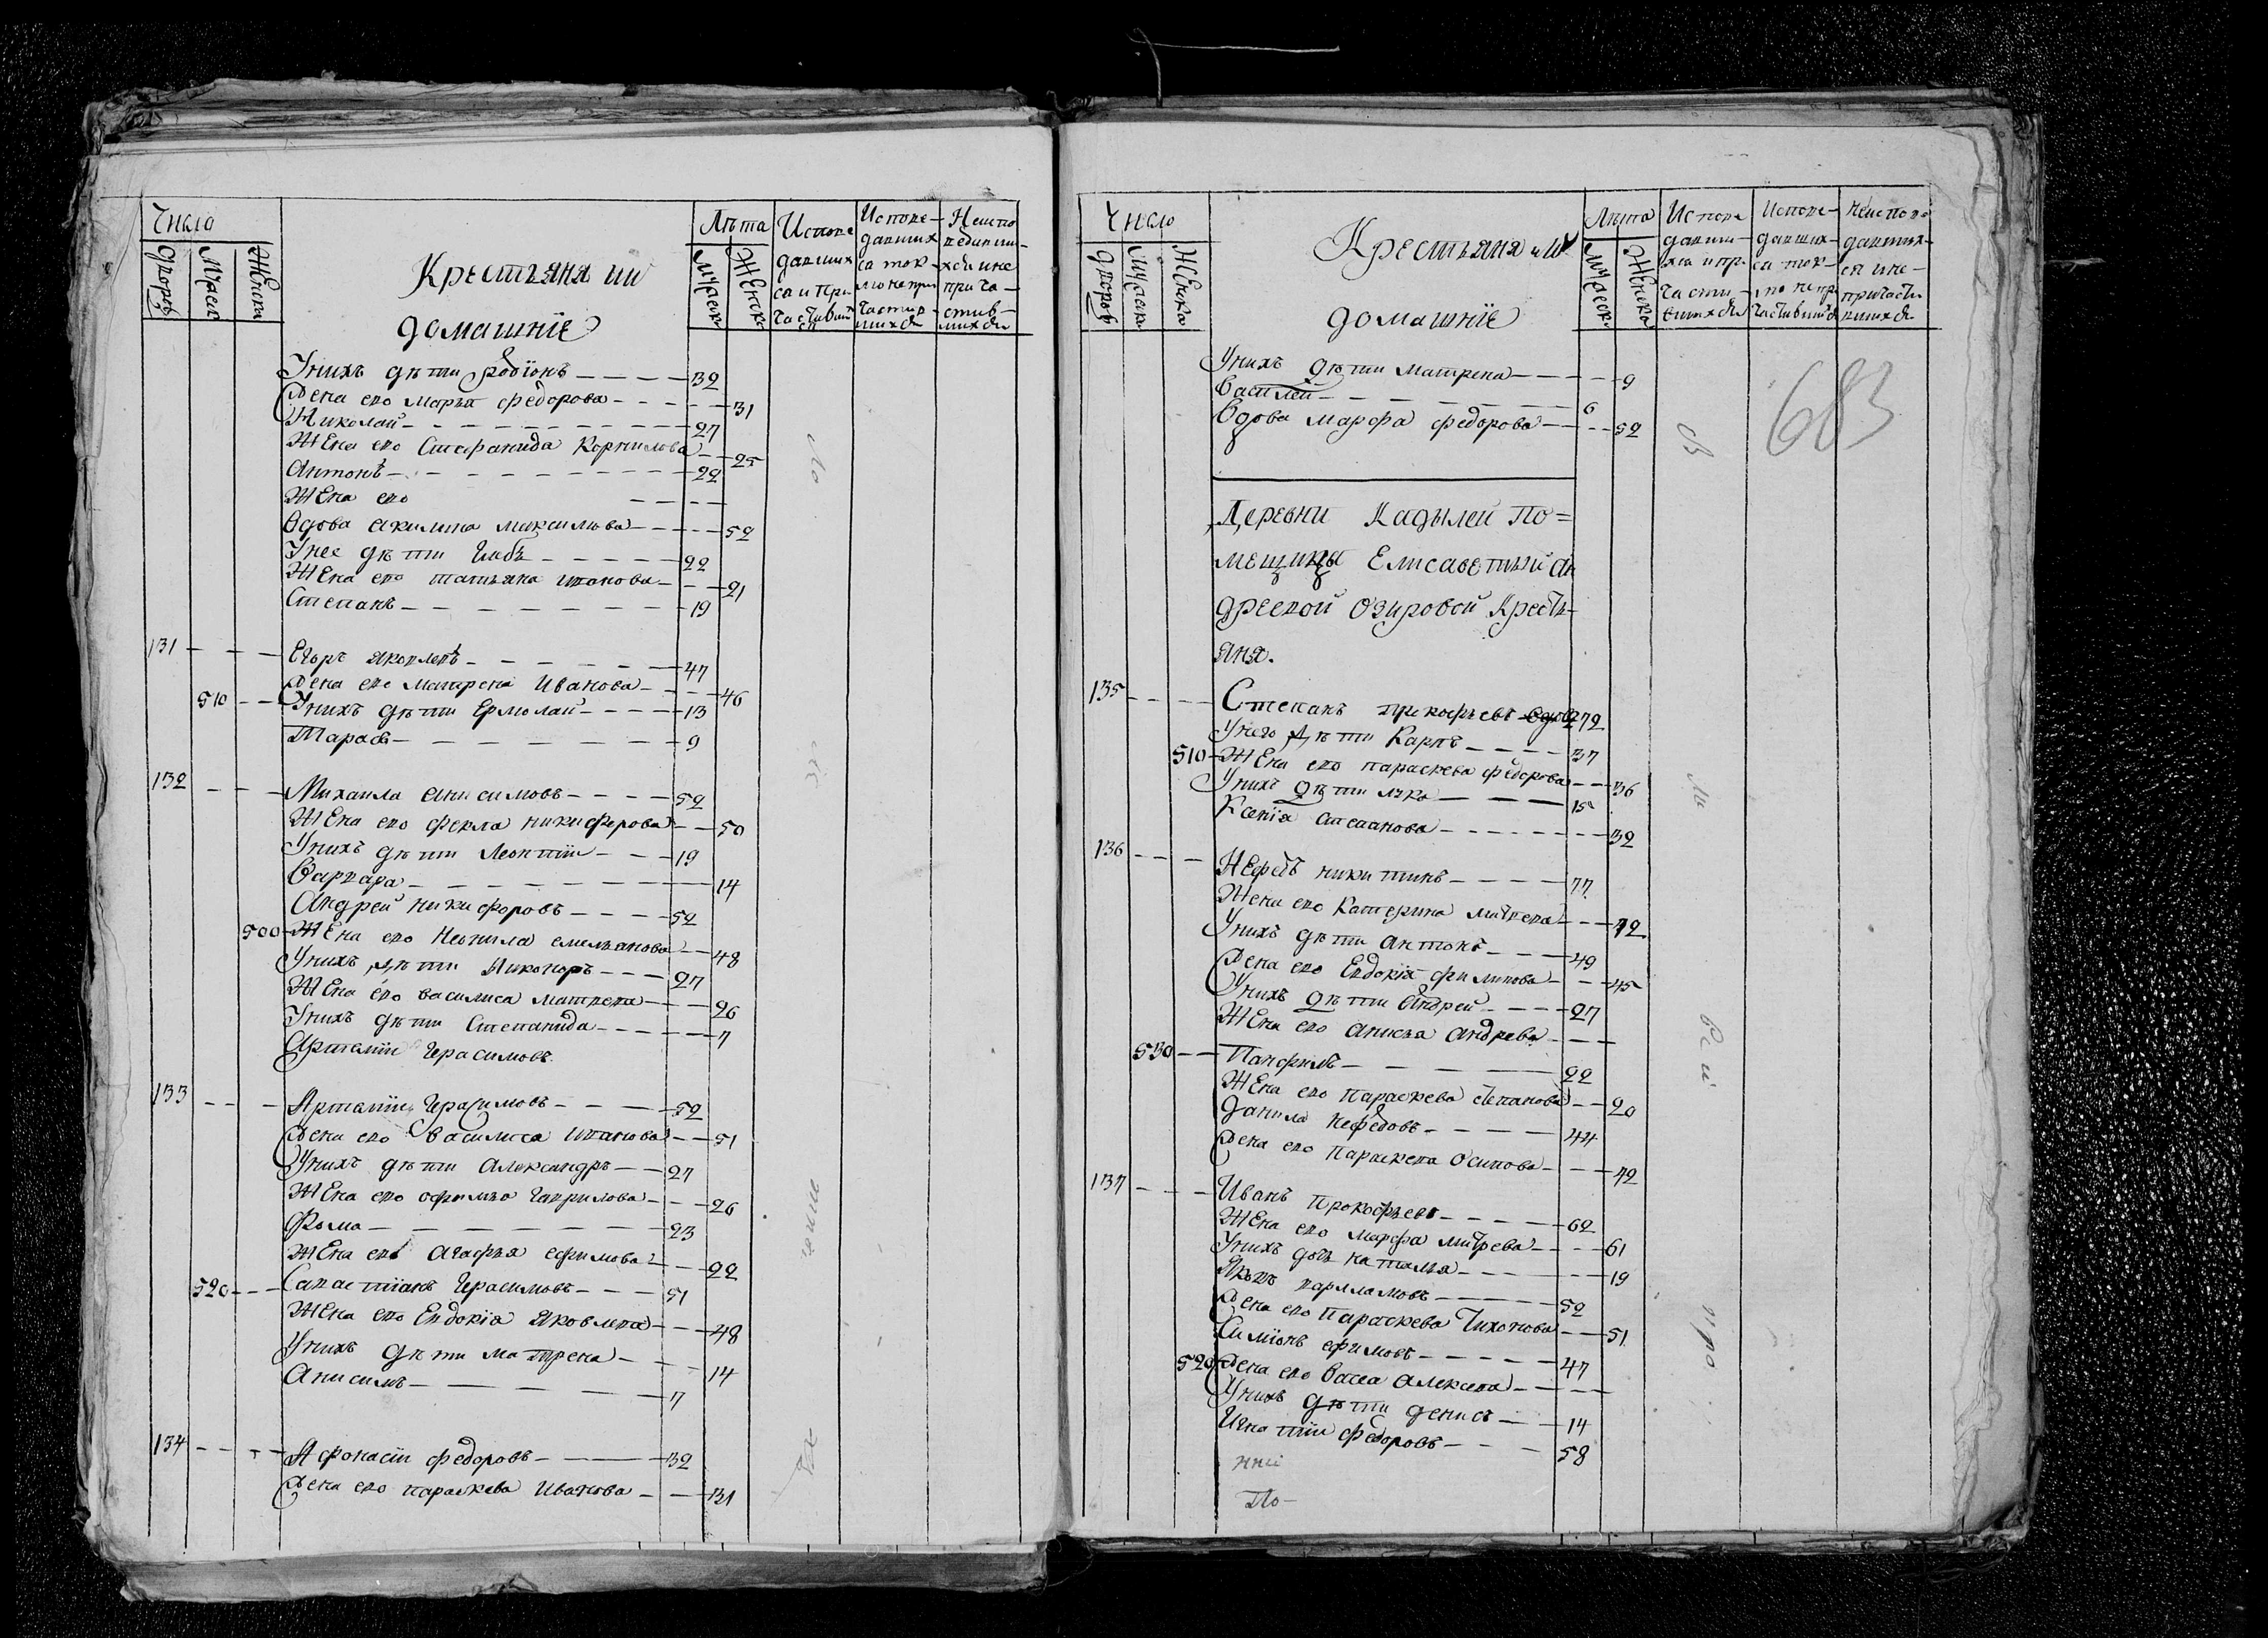 Число
Дворовъ
Мужеск
Женска
Крестьяня ии
домашніе
Лѣта
Мужеск
Женск
Испове
давших
ся и При
частивших
ся
Испове-
давших
ся ток-
мо непри
частив
шихся
Неиспо
ведавши-
хся и не
прича-
стив-
шихся
Унихъ дѣти Родіонъ 32
Жена ево Марья Федорова 31
Николай 27
Жена ево Стефанида Корнилова 25
Антонъ 22
Жена ево
Вдова Акилина Максимова 52
Унее дѣти Глебъ 22
Жена ево татьяна иванова 21
Степанъ 19
131 Егоръ яковлевъ 47
Жена ево Матрена Иванова 46
510 Унихъ дѣти Ермолай 13
Тарасъ 9
132 Михаила Анисимовъ 52
Жена ево фекла никифорова 50
Унихъ дѣти Леонтій 19
Варвара 14
Андрей никифоровъ 52
500 Жена ево Неонила емельянова 48
Унихъ дѣти Никоноръ 27
Жена ево василиса матвева 26
Унихъ дѣти Степанида 7
Артемій Герасимовъ
133 Артемій Герасимовъ 52
Жена ево Василиса иванова 51
Унихъ дѣти Александръ 27
Жена ево офимья гаврилова 26
Фома 23
Жена ево Агафья ефимова 22
520 Савастіанъ Герасимовъ 51
Жена ево Евдокія Яковлева 48
Унихъ дѣти матрена 14
Анисимъ 7
134 Афонасіи федоровъ 32
Жена ево параскева Иванова 31
Число
Дворовъ
Мужеск
Женска
Крестьяня ии
домашніе
Лѣта
Мужеск
Женска
Испове
давши-
хся и при
части-
вшихся
Испове-
давших-
ся ток-
мо непри
частивших
Неиспове
давших-
ся и не-
причасти
вшихся
683
Унихъ дѣти Матрена 9
Василей 6
Вдова Марфа федорова 52
Деревни Кадылей По=
мещицы Елисаветы Ан
дреевой Озировой Кресть-
яня.
135 Степанъ прокофьевъ вдовъ 72
Унего дѣти Карпъ 37
510 Жена ево параскева федорова 36
Унихъ дѣти лука 15
Ксенія степанова 32
136 Нефедъ никитинъ 77
Жена ево Катерина матвева 72
Унихъ дѣти антонъ 49
Жена ево Евдокія филипова 45
Унихъ дѣти Андрей 27
Жена ево анисья Андреева
530 Панфилъ 22
Жена ево Параскева степанова 20
Данила нефедовъ 44
Жена ево Параскева Осипова 42
137 Иванъ Прокофьевъ 62
Жена ево марфа митрева 61
Унихъ дочь наталья 19
Яковъ варламовъ 52
Жена ево Параскева Тихонова 51
Симіонъ ефимовъ 47
520 Жена ево васса Алексева
Унихъ дѣти денисъ 14
Игнатіи федоровъ 58
ній
По-